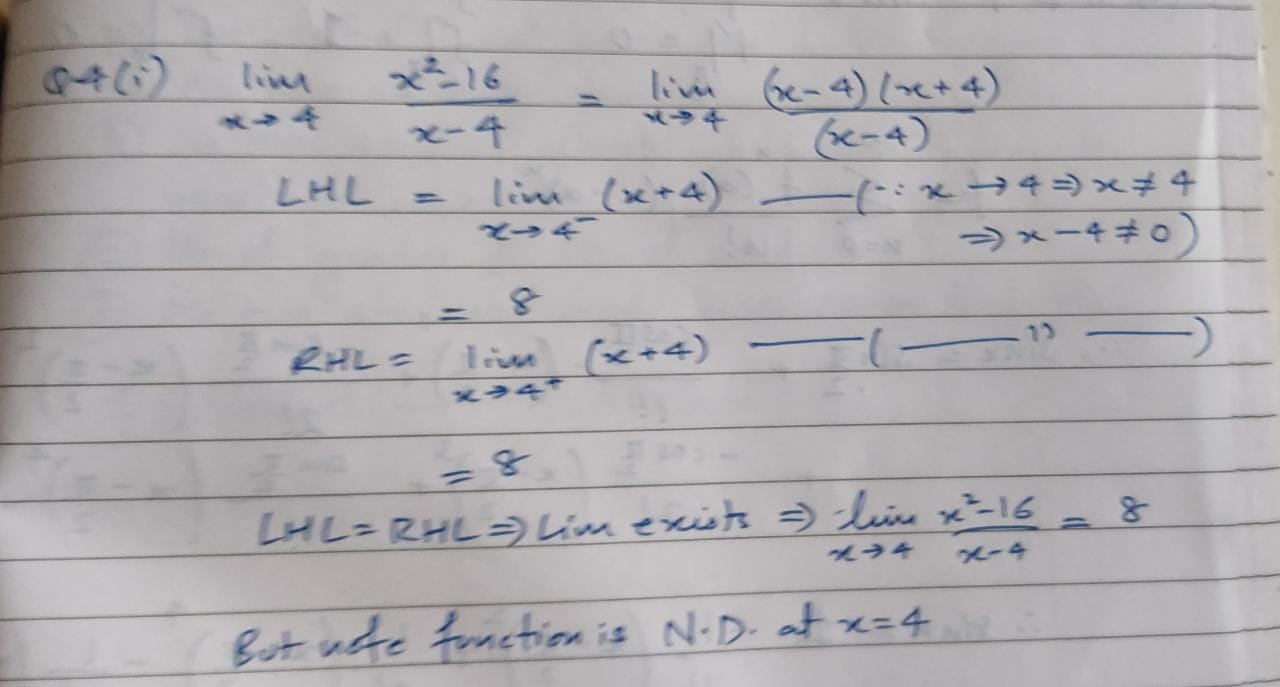 Q-4(i) lim x→4 x²-16 / x-4 = lim x→4 (x-4)(x+4) / (x-4)
LHL = lim x→4⁻ (x+4) —(∵ x→4 ⇒ x≠4
⇒ x-4≠0)
= 8
RHL = lim x→4⁺ (x+4) —(— '' —)
= 8
LHL=RHL ⇒ Lim exists ⇒ lim x→4 x²-16 / x-4 = 8
But note function is N.D. at x=4